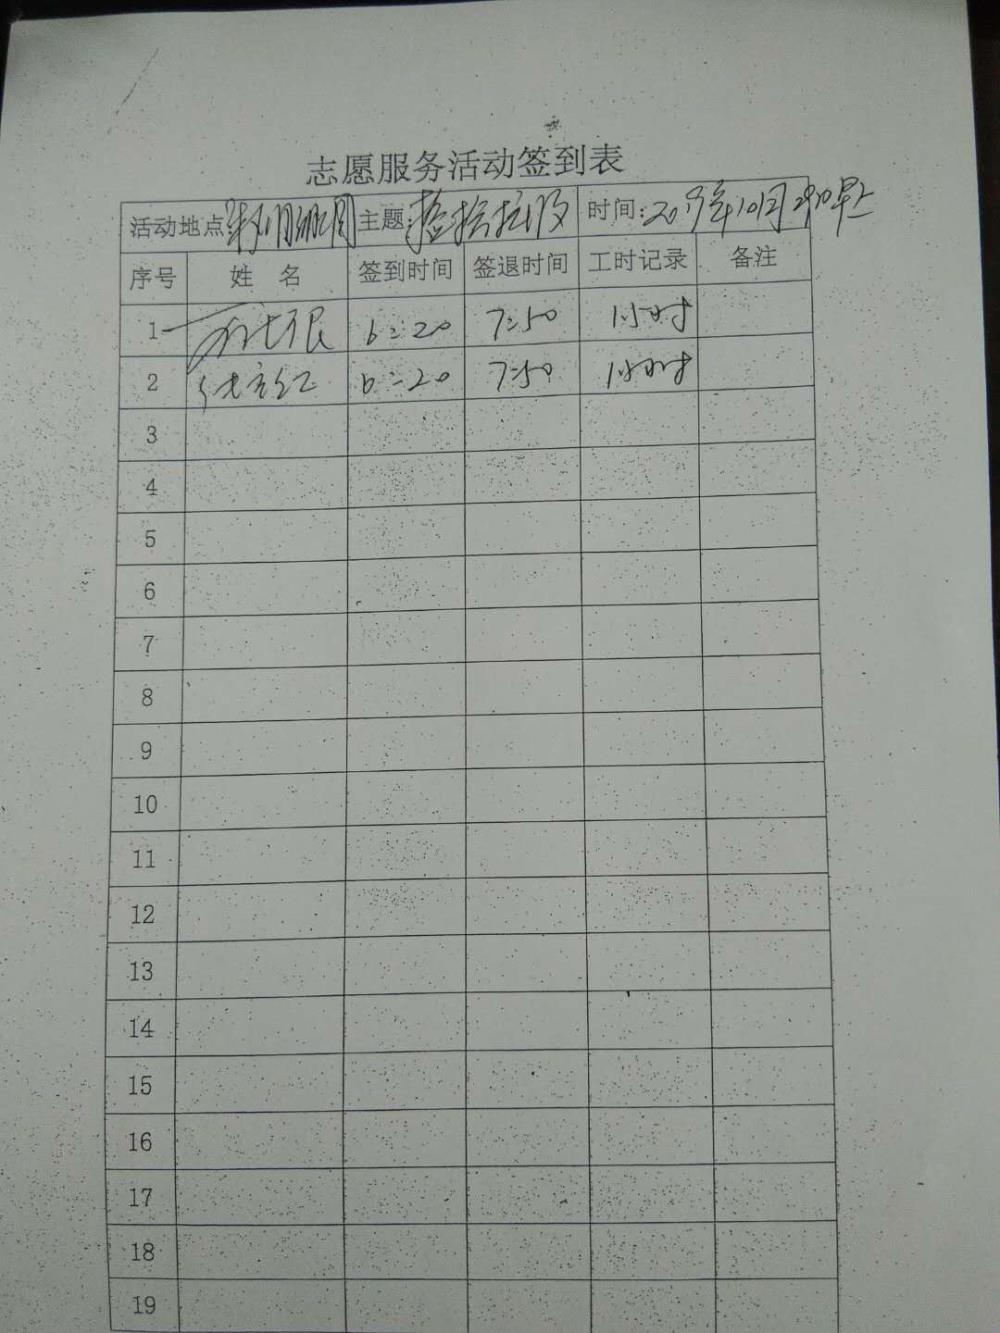 志愿服务活动签到表
活动地点 主题: 捡捡垃圾 时间:2019年10月29日早上
序号 姓 名 签到时间 签退时间 工时记录 备注
1 6:20 7:50 1小时
2 6:20 7:50 1小时
3
4
5
6
7
8
9
10
11
12
13
14
15
16
17
18
19